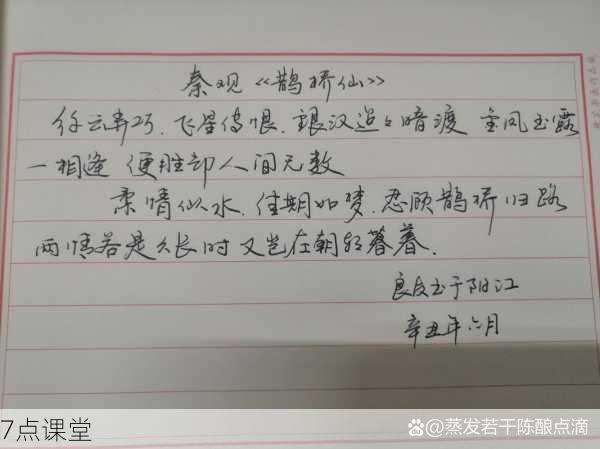 秦观《鹊桥仙》
纤云弄巧.飞星传恨.银汉迢々暗渡 金风玉露
一相逢 便胜却人间无数
柔情似水.佳期如梦.忍顾鹊桥归路
两情若是久长时 又岂在朝朝暮暮.
良友玉于阳江
辛丑年六月
7点课堂
@蒸发若干陈酿点滴